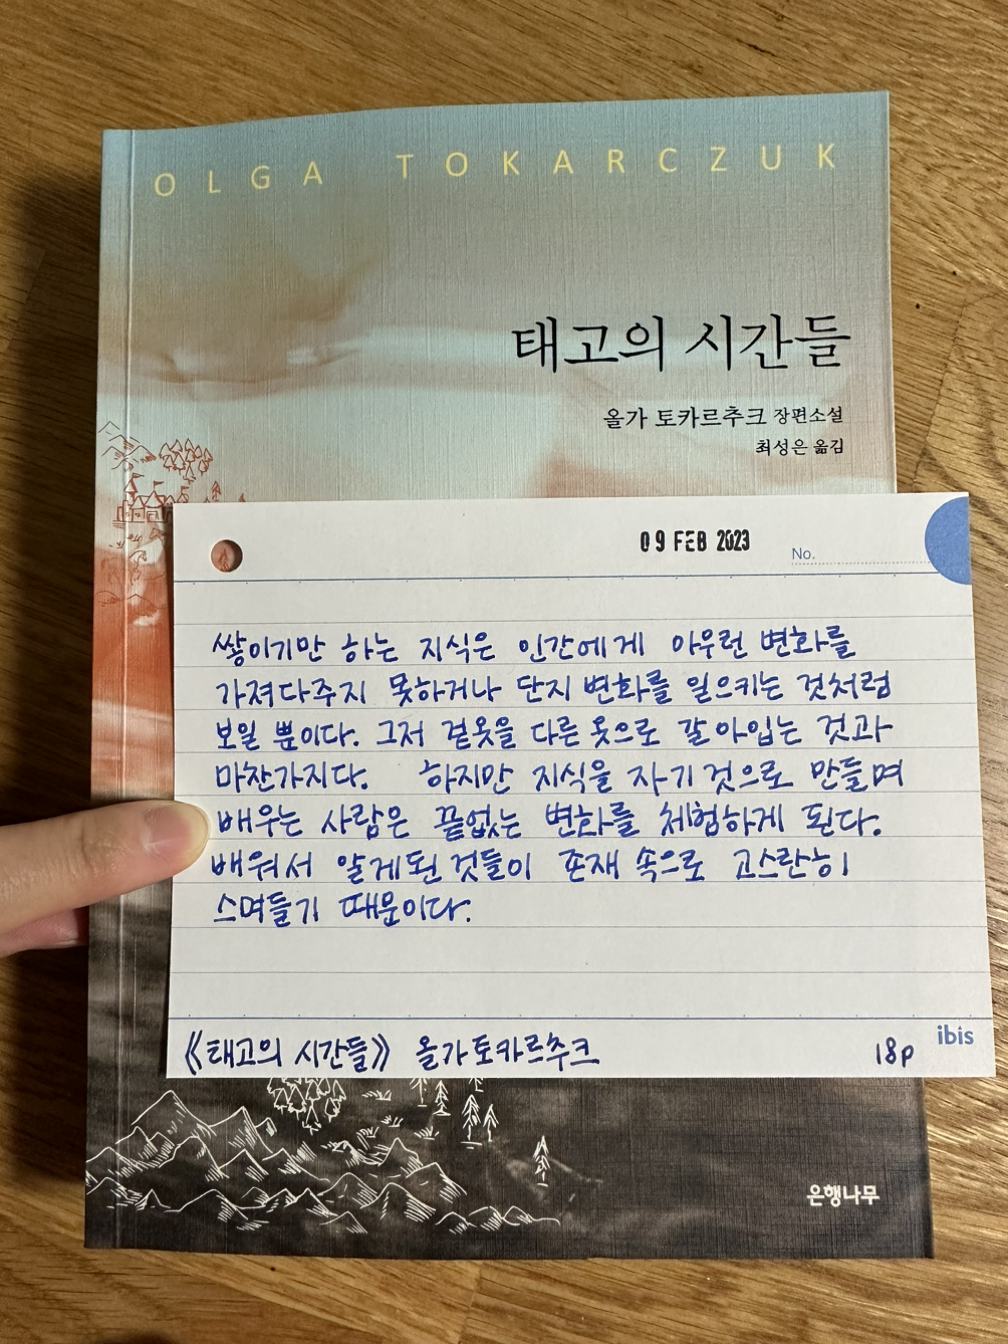 OLGA TOKARCZUK
태고의 시간들
올가 토카르추크 장편소설
최성은 옮김
09 FEB 2023
No.
쌓이기만 하는 지식은 인간에게 아무런 변화를
가져다주지 못하거나 단지 변화를 일으키는 것처럼
보일 뿐이다. 그저 겉옷을 다른 옷으로 갈아입는 것과
마찬가지다. 하지만 지식을 자기 것으로 만들며
배우는 사람은 끝없는 변화를 체험하게 된다.
배워서 알게된 것들이 존재 속으로 고스란히
스며들기 때문이다.
《태고의 시간들》 올가 토카르추크 18p
ibis
은행나무